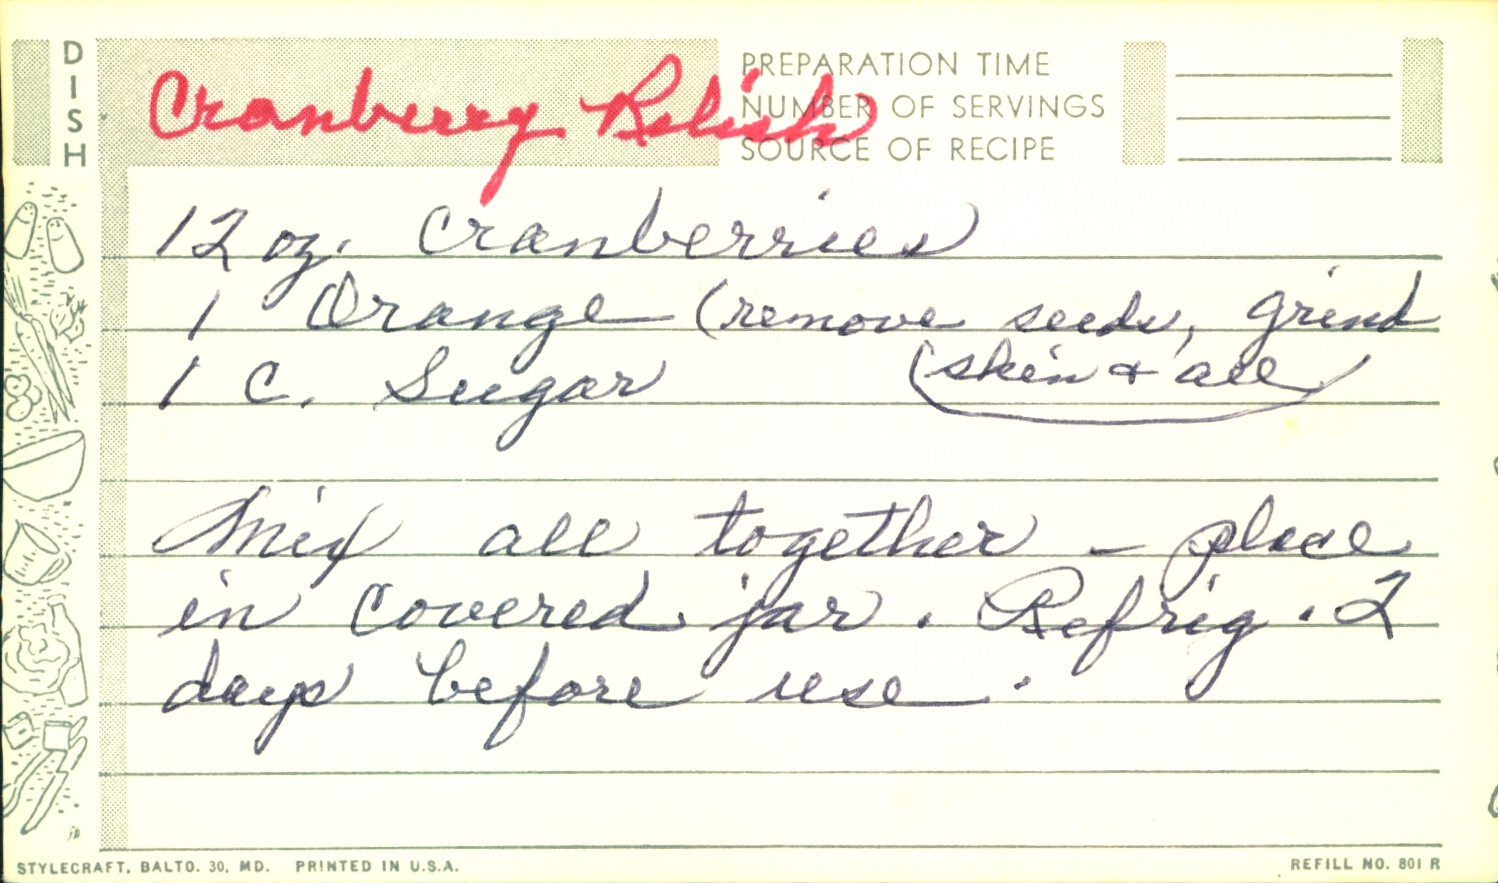 DISH
Cranberry Relish
PREPARATION TIME
NUMBER OF SERVINGS
SOURCE OF RECIPE
12 oz. Cranberries
1 Orange (remove seeds, grind
(skin & all)
1 C. Sugar
Mix all together - place
in covered jar. Refrig. 2
days before use.
STYLECRAFT, BALTO. 30, MD. PRINTED IN U.S.A.
REFILL NO. 801 R